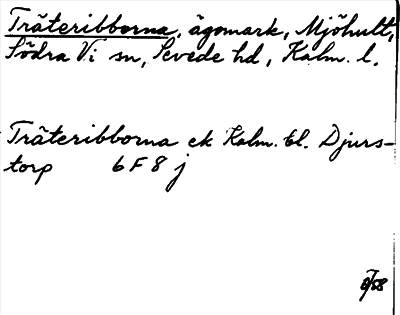 Träteribborna, ägomark, Mjöhult,
Södra Vi sn, Sevede hd, Kalm. l.
Träteribborna ek Kalm. bl. Djurs-
torp 6 F 8 j